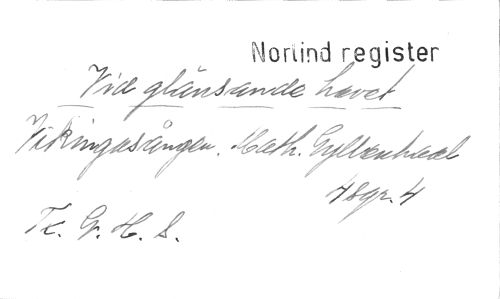 Norlind register
Vid glänsande havet
Vikingasången. Math. Gyllenhaal
48gr. 4
Tr. G. H. S.